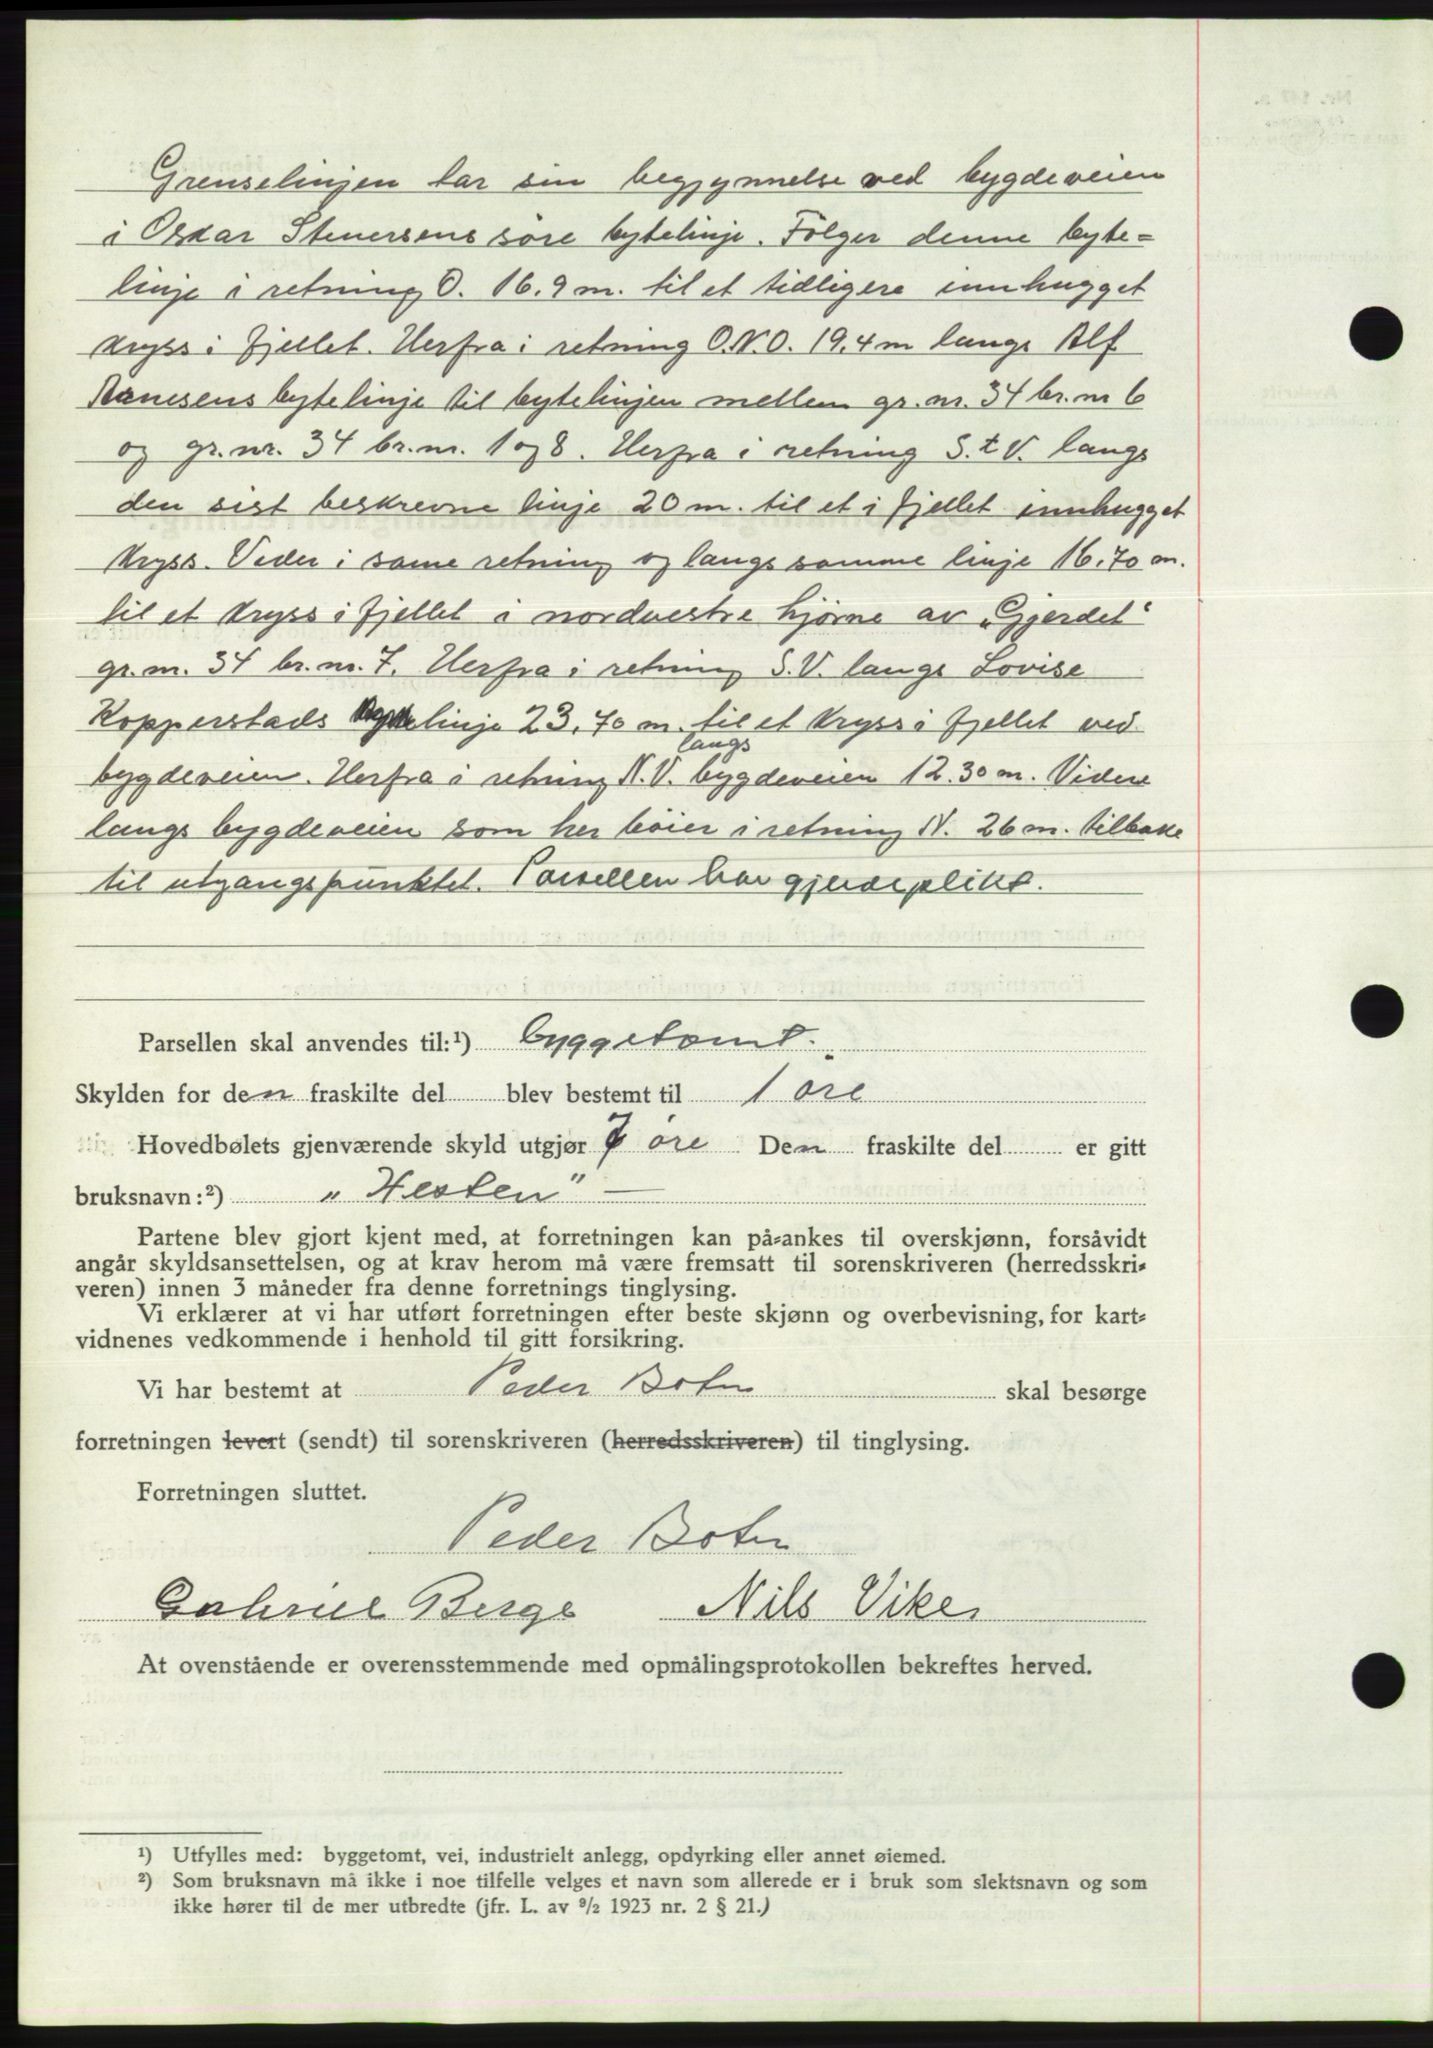 Grenselinjen tar sin begjynnelse ved bygdeveien
i Oskar Stenersens søre bytelinje. Følger denne byte=
linje i retning O. 16.9 m. til et tidligere innhugget
kryss i fjellet. Herfra i retning O.N.O. 19.4 m langs Alf
bytelinje til bytelinjen mellem gr. nr. 34 br. nr 6
og gr. nr. 34 br. nr. 1 og 8. Herfra i retning S.t.V. langs
den sist beskrevne linje 20 m. til et i fjellet innhugget
kryss. Vider i same retning og langs samme linje 16.70 m.
til et kryss i fjellet i nordvestre hjørne av „Gjerdet"
gr. nr. 34 br. nr. 7. Herfra i retning S.V. langs Lovise
Kopperstads linje 23.70 m. til et kryss i fjellet ved
langs
bygdeveien. Herfra i retning N.V. bygdeveien 12.30 m. Videre
langs bygdeveien som her bøier i retning N. 26 m. tilbake
til utgangspunktet. Parsellen har gjerdeplikt.
Parsellen skal anvendes til:¹) byggetomt.
Skylden for den fraskilte del blev bestemt til 1 øre
Hovedbølets gjenværende skyld utgjør 7 øre Den fraskilte del er gitt
bruksnavn:²) „Hesten" —
Partene blev gjort kjent med, at forretningen kan på-ankes til overskjønn, forsåvidt
angår skyldsansettelsen, og at krav herom må være fremsatt til sorenskriveren (herredsskri-
veren) innen 3 måneder fra denne forretnings tinglysing.
Vi erklærer at vi har utført forretningen efter beste skjønn og overbevisning, for kart-
vidnenes vedkommende i henhold til gitt forsikring.
Vi har bestemt at Peder Botn skal besørge
forretningen levert (sendt) til sorenskriveren (herredsskriveren) til tinglysing.
Forretningen sluttet.
Peder Botn
Gabriel Berge Nils Vike
At ovenstående er overensstemmende med opmålingsprotokollen bekreftes herved.
¹) Utfylles med: byggetomt, vei, industrielt anlegg, opdyrking eller annet øiemed.
²) Som bruksnavn må ikke i noe tilfelle velges et navn som allerede er i bruk som slektsnavn og som
ikke hører til de mer utbredte (jfr. L. av ⁹/₂ 1923 nr. 2 § 21.)